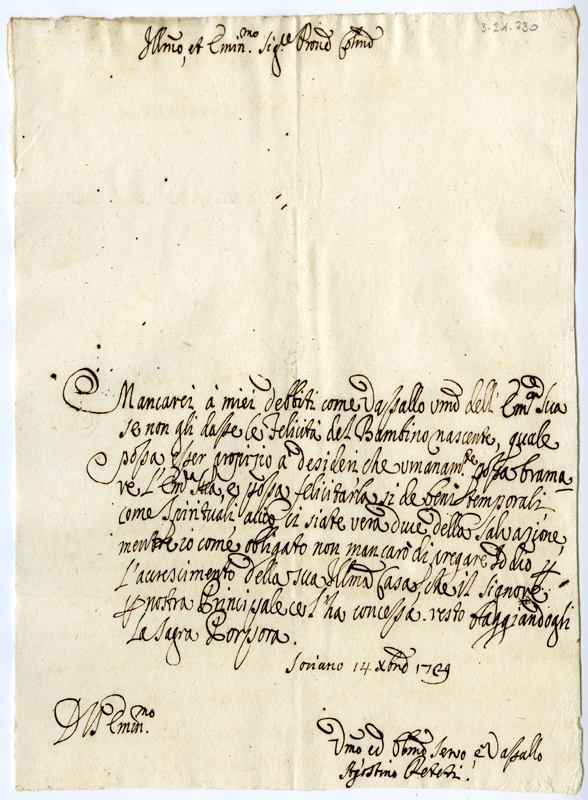 3-21-730
Illmo, et Emin.mo Sig.re Prone Colmo
Mancarei á miei debbiti come Vassallo Umo dell' Emza Sua
se non gli dasse le felicitá del Bambino nascente, quale
possa esser propizio á desideri che umanam.te possa brama=
re L'Emza Sua, e possa felicitarla si de beni temporali
come Spirituali
mentre io come obligato non mancaró di pregare Iddio p
L'accrescimento della sua Illma Casa, che il Signore
p nostra Principale ce l'ha concessa. resto
La Sagra Porpora.
Soriano 14 Xbre 1729
D V Emin.mo
Umo ed Obbmo Servo é Vassallo
Agostino